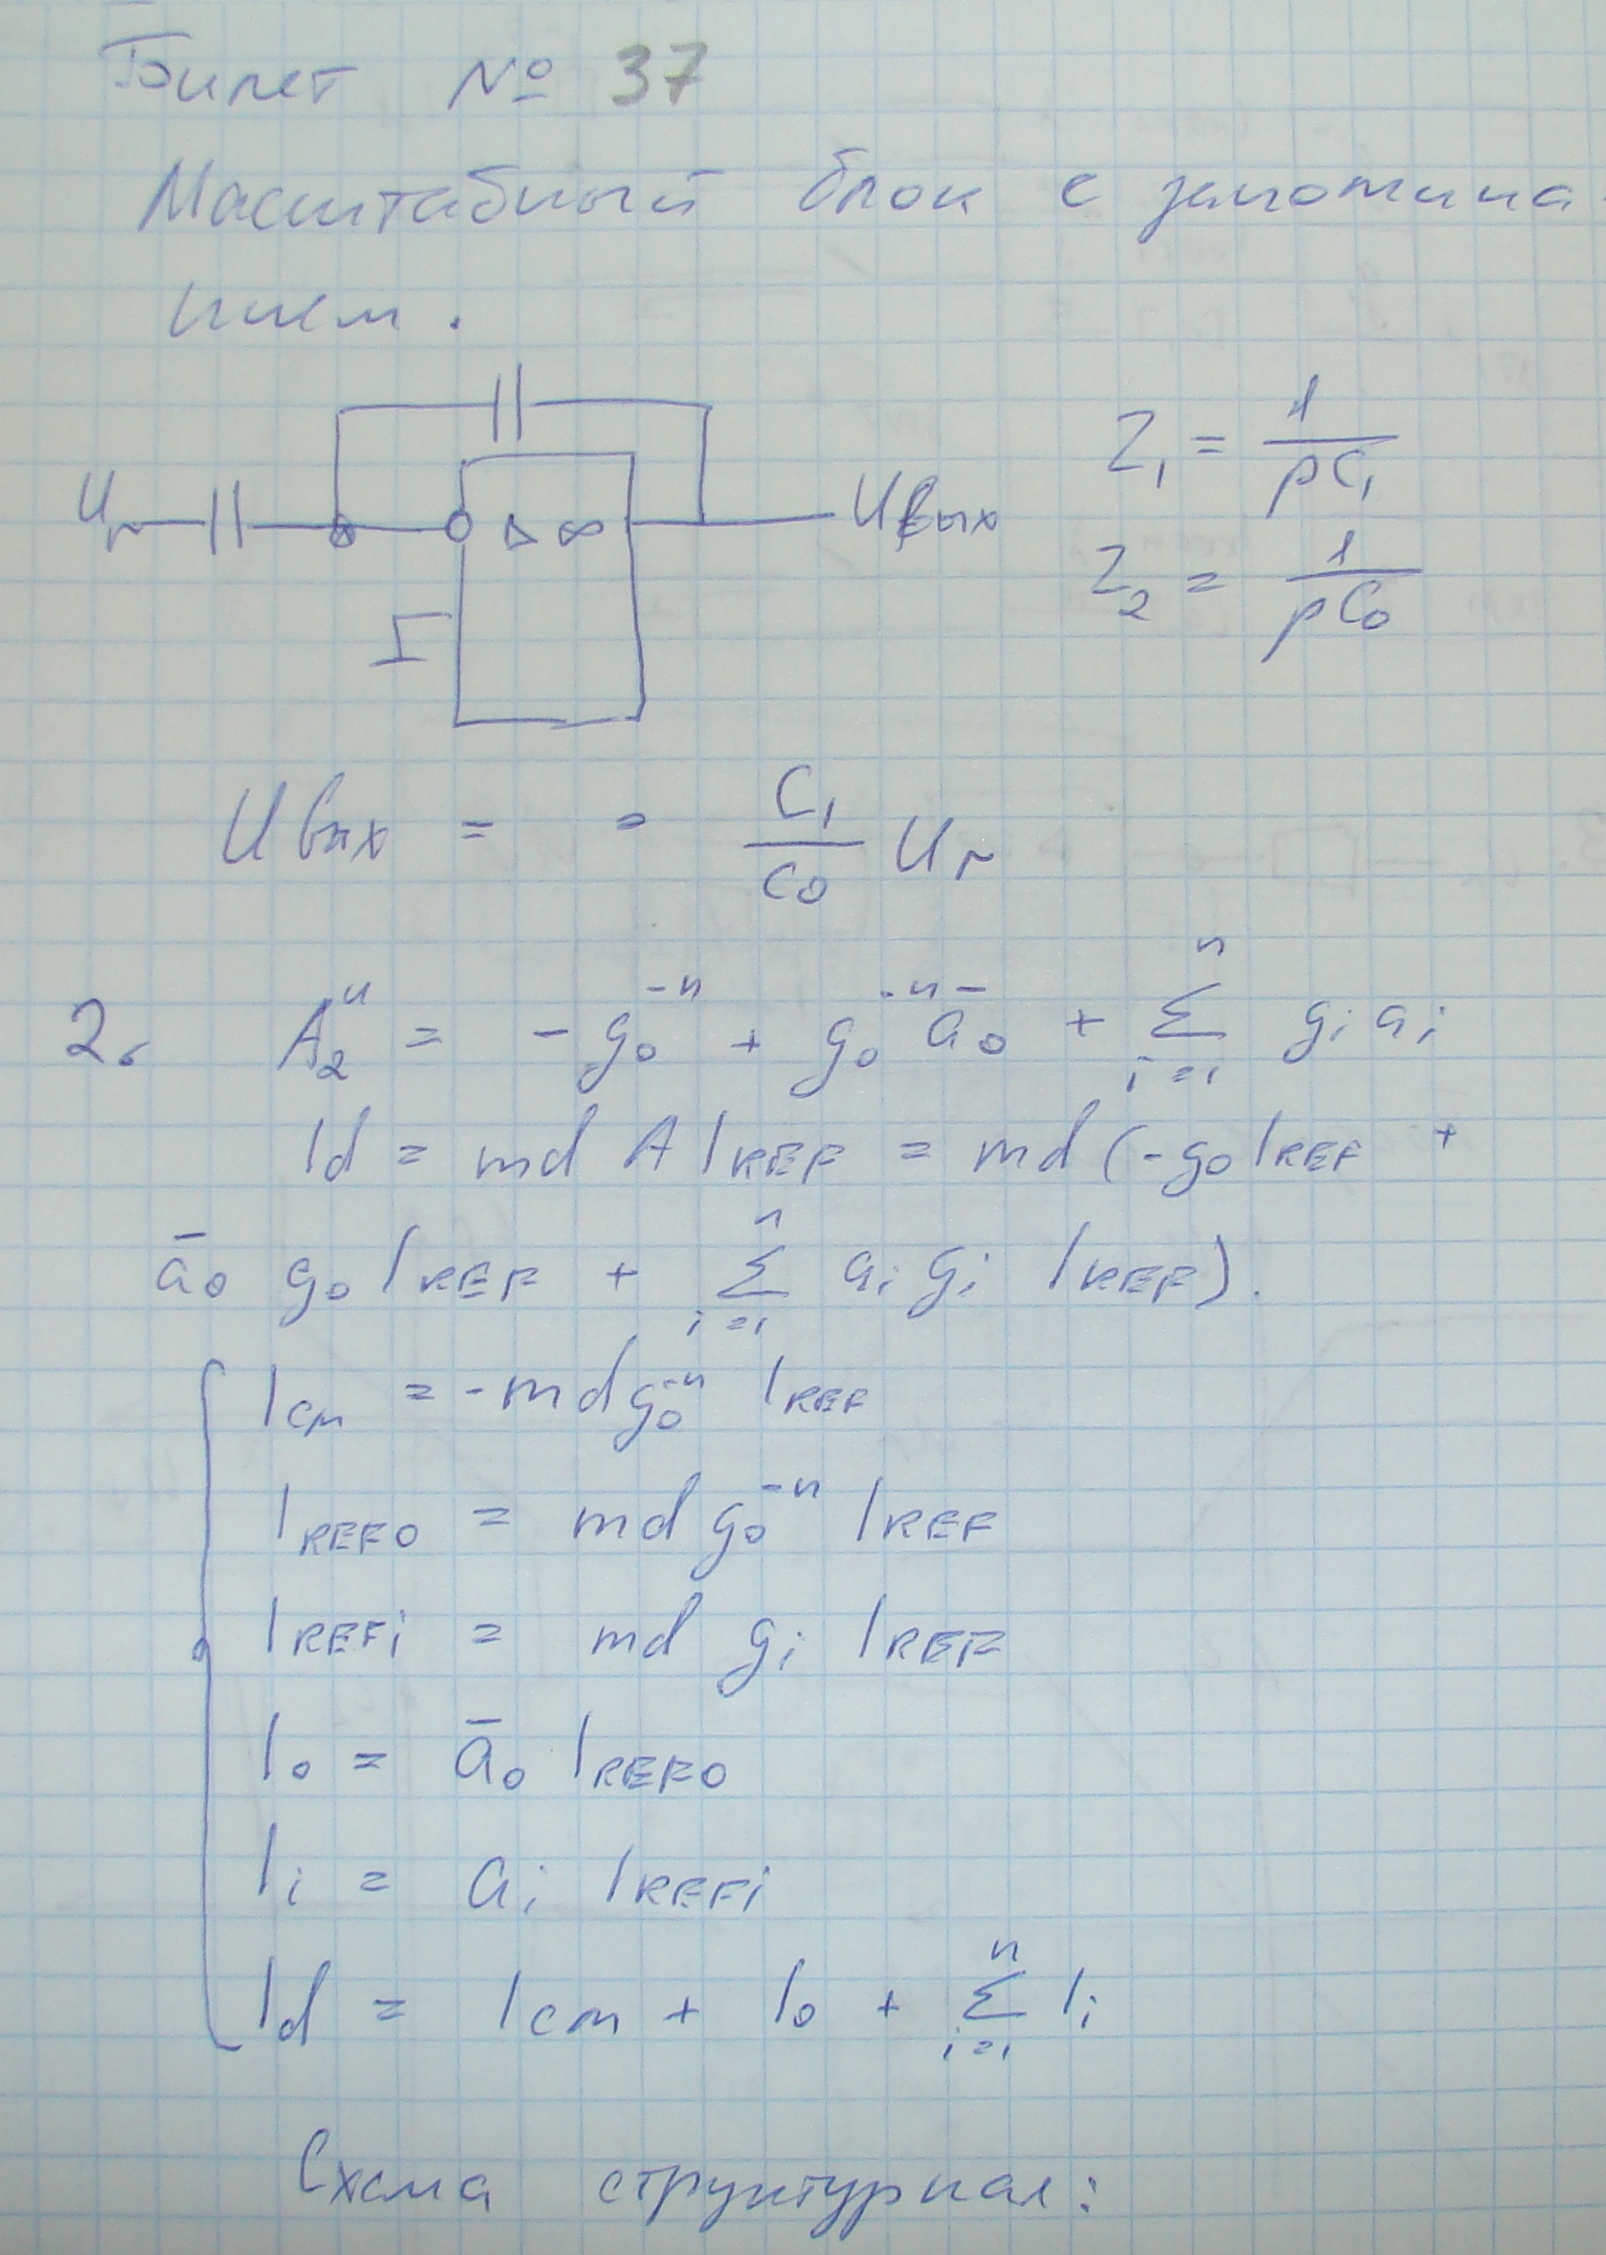 Билет № 37
Масштабный блок с запомина-
нием.
U~
▷ ∞
Uвых
Z₁ = 1/pC₁
Z₂ = 1/pC₀
Uвых = = C₁/C₀ U~
2. A₂ⁿ = -g₀⁻ⁿ + g₀⁻ⁿ ā₀ + Σ_{i=1}^{n} gᵢ aᵢ
Id = md A I_REF = md (-g₀ I_REF +
ā₀ g₀ I_REF + Σ_{i=1}^{n} aᵢ gᵢ I_REF).
Iсм = -md g₀⁻ⁿ I_REF
I_REF0 = md g₀⁻ⁿ I_REF
I_REFi = md gᵢ I_REF
I₀ = ā₀ I_REF0
Iᵢ = aᵢ I_REFi
Id = Iсм + I₀ + Σ_{i=1}^{n} Iᵢ
Схема структурная: